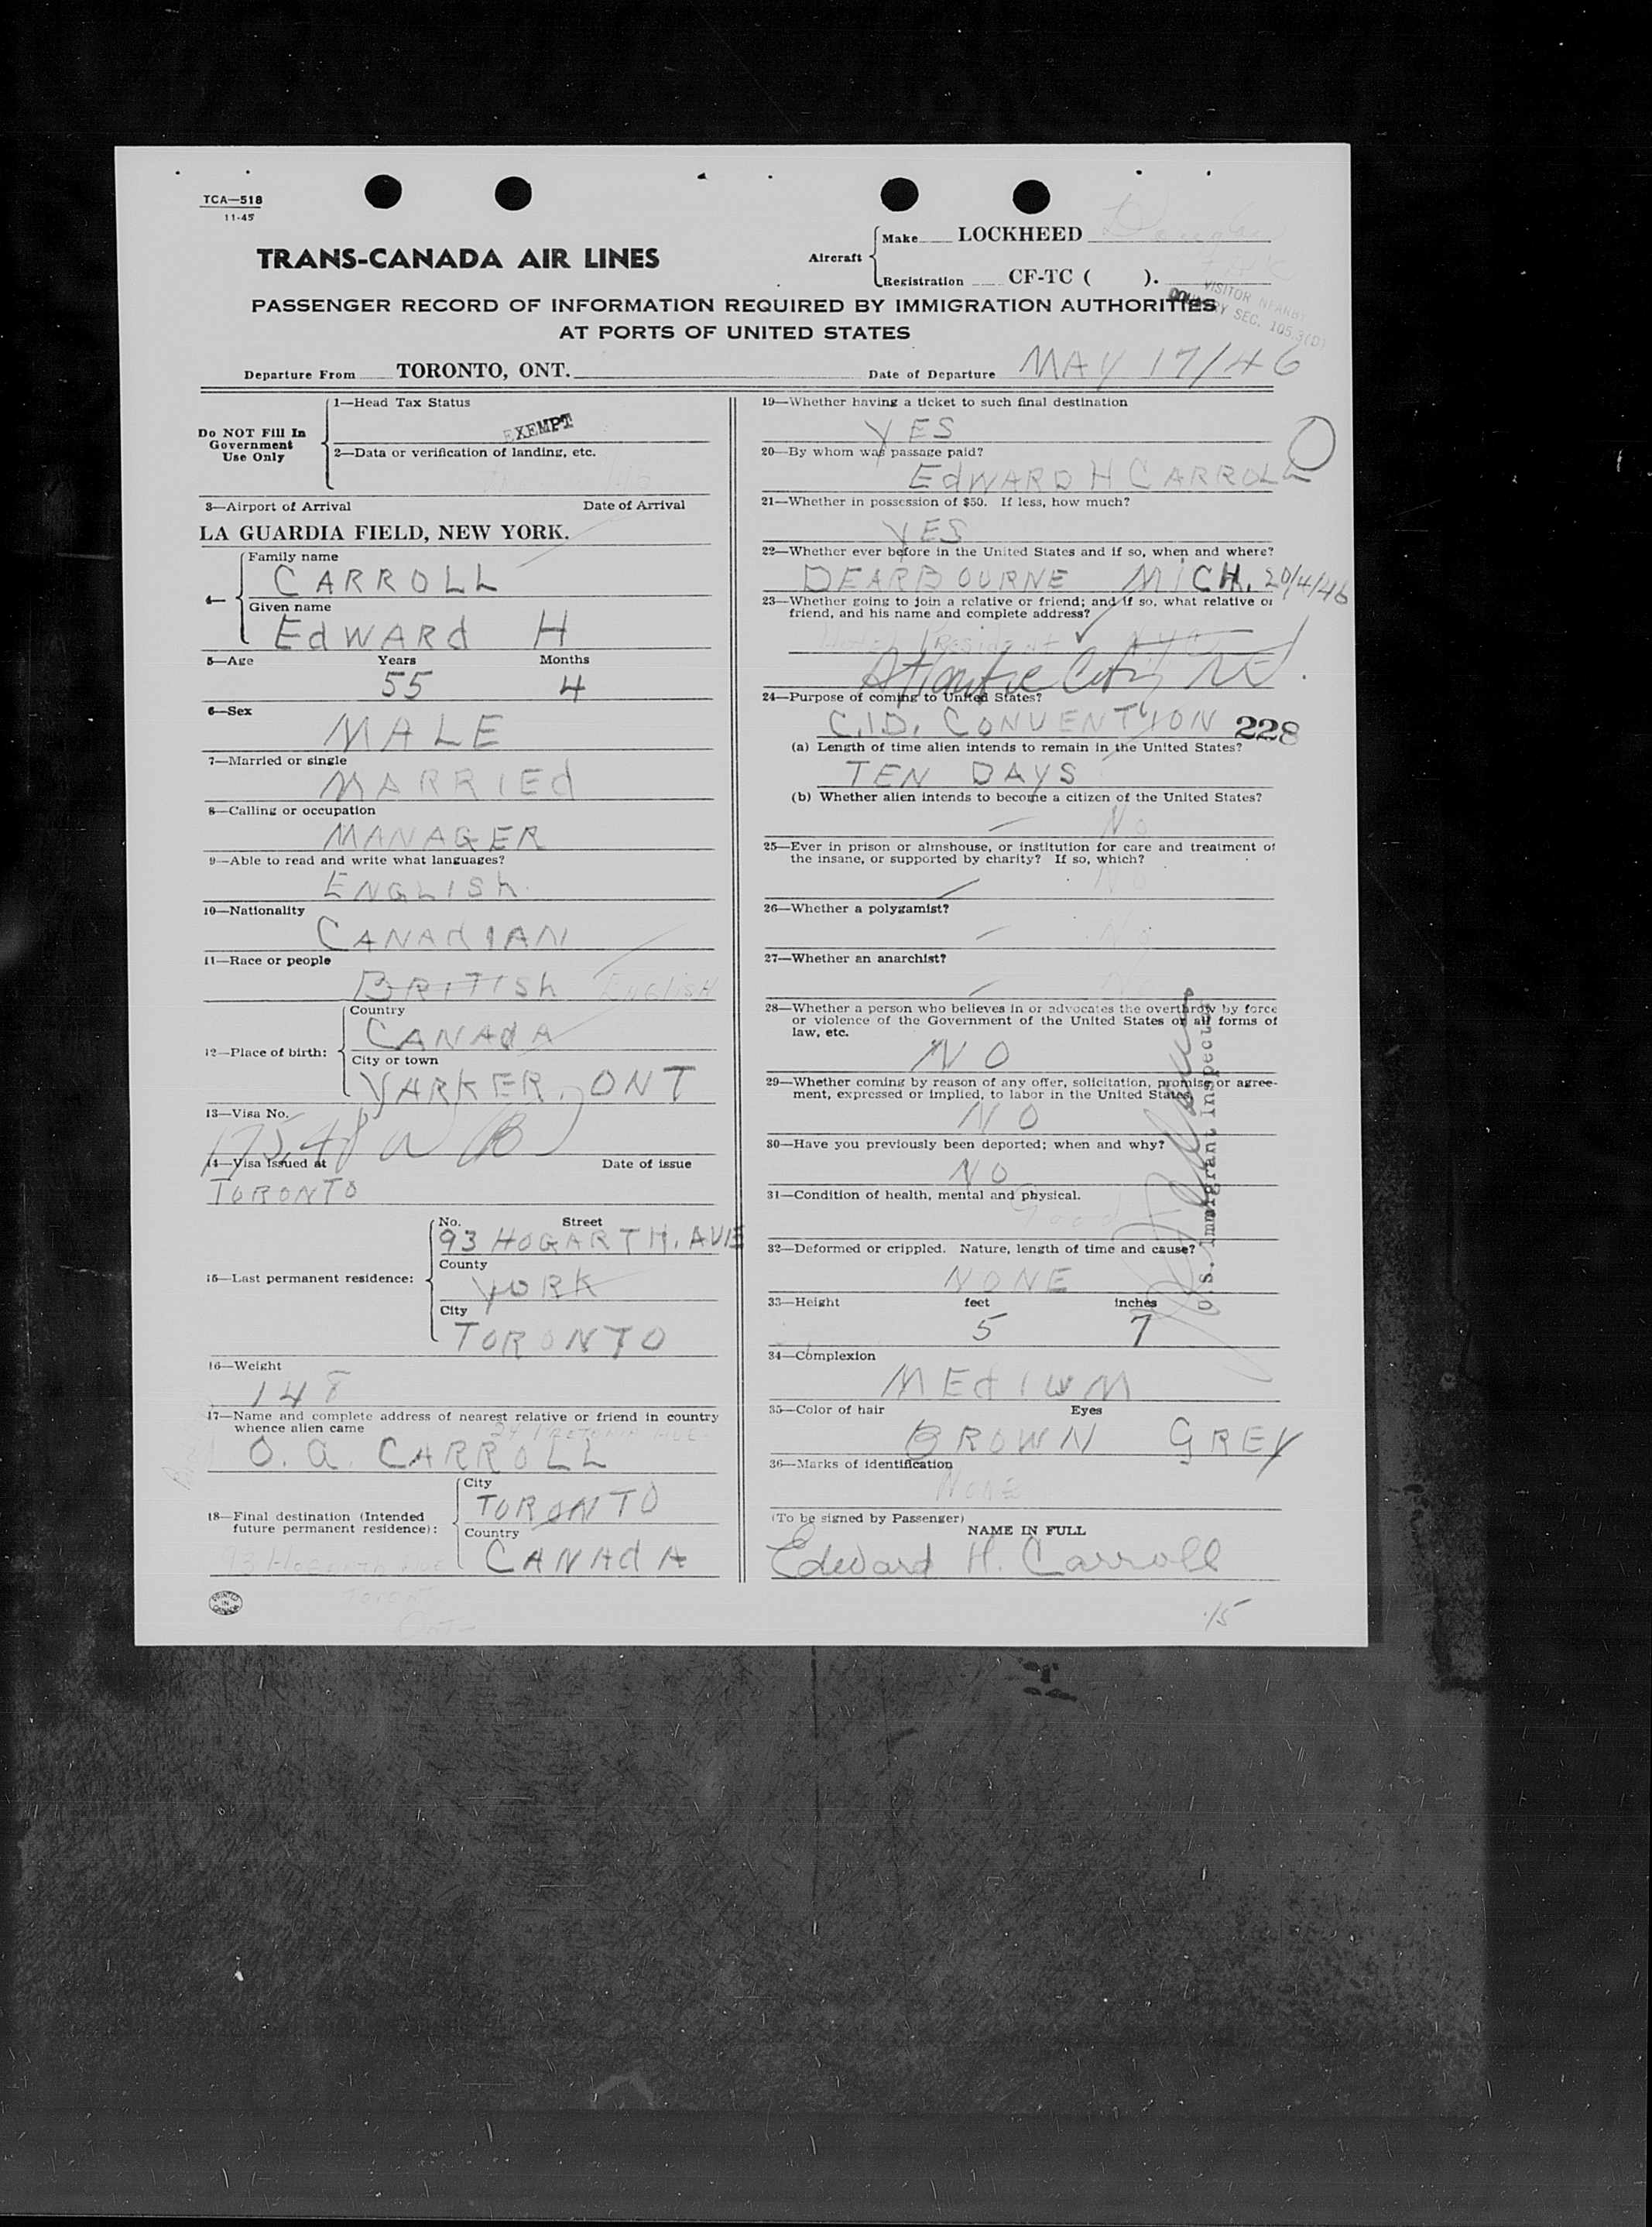 TCA—518
11-45
TRANS-CANADA AIR LINES
Aircraft
Make LOCKHEED
Registration CF-TC ( ).
VISITOR
COUNTRY SEC. 105.3(D)
PASSENGER RECORD OF INFORMATION REQUIRED BY IMMIGRATION AUTHORITIES
AT PORTS OF UNITED STATES
Departure From TORONTO, ONT. Date of Departure MAY 17/46
Do NOT Fill In
Government
Use Only
1—Head Tax Status
EXEMPT
2—Data or verification of landing, etc.
3—Airport of Arrival Date of Arrival
LA GUARDIA FIELD, NEW YORK.
4—
Family name
CARROLL
Given name
EdWARd H
5—Age Years Months
55 4
6—Sex
MALE
7—Married or single
MARRIEd
8—Calling or occupation
MANAGER
9—Able to read and write what languages?
ENGLISh.
10—Nationality
CANAdIAN
11—Race or people
BRITISh ENGLISH
12—Place of birth:
Country
CANAdA
City or town
YARKER, ONT
13—Visa No.
14—Visa Issued at Date of issue
TORONTO
15—Last permanent residence:
No. Street
93 HOGARTH. AVE
County
YORK
City
TORONTO
16—Weight
148
17—Name and complete address of nearest relative or friend in country
whence alien came
O. A. CARROLL
18—Final destination (Intended
future permanent residence):
City
TORONTO
Country
CANAdA
93 HOGARTH AVE
PRINTED
IN
CANADA
19—Whether having a ticket to such final destination
YES
20—By whom was passage paid?
EdWARD H CARROLL
21—Whether in possession of $50. If less, how much?
YES
22—Whether ever before in the United States and if so, when and where?
DEARBOURNE MICH. 20/4/46
23—Whether going to join a relative or friend; and if so, what relative or
friend, and his name and complete address?
Atlantic City NJ.
24—Purpose of coming to United States?
C.I.D. CONVENTION 228
(a) Length of time alien intends to remain in the United States?
TEN DAYS
(b) Whether alien intends to become a citizen of the United States?
— No
25—Ever in prison or almshouse, or institution for care and treatment of
the insane, or supported by charity? If so, which?
— No
26—Whether a polygamist?
— No
27—Whether an anarchist?
—
28—Whether a person who believes in or advocates the overthrow by force
or violence of the Government of the United States or all forms of
law, etc.
NO
29—Whether coming by reason of any offer, solicitation, promise or agree-
ment, expressed or implied, to labor in the United States
NO
30—Have you previously been deported; when and why?
NO
31—Condition of health, mental and physical.
Good
32—Deformed or crippled. Nature, length of time and cause?
NONE
U.S. Immigrant Inspector
33—Height feet inches
5 7
34—Complexion
MEdIUM
35—Color of hair Eyes
BROWN GREY
36—Marks of identification
NONE
(To be signed by Passenger)
NAME IN FULL
Edward H. Carroll
15